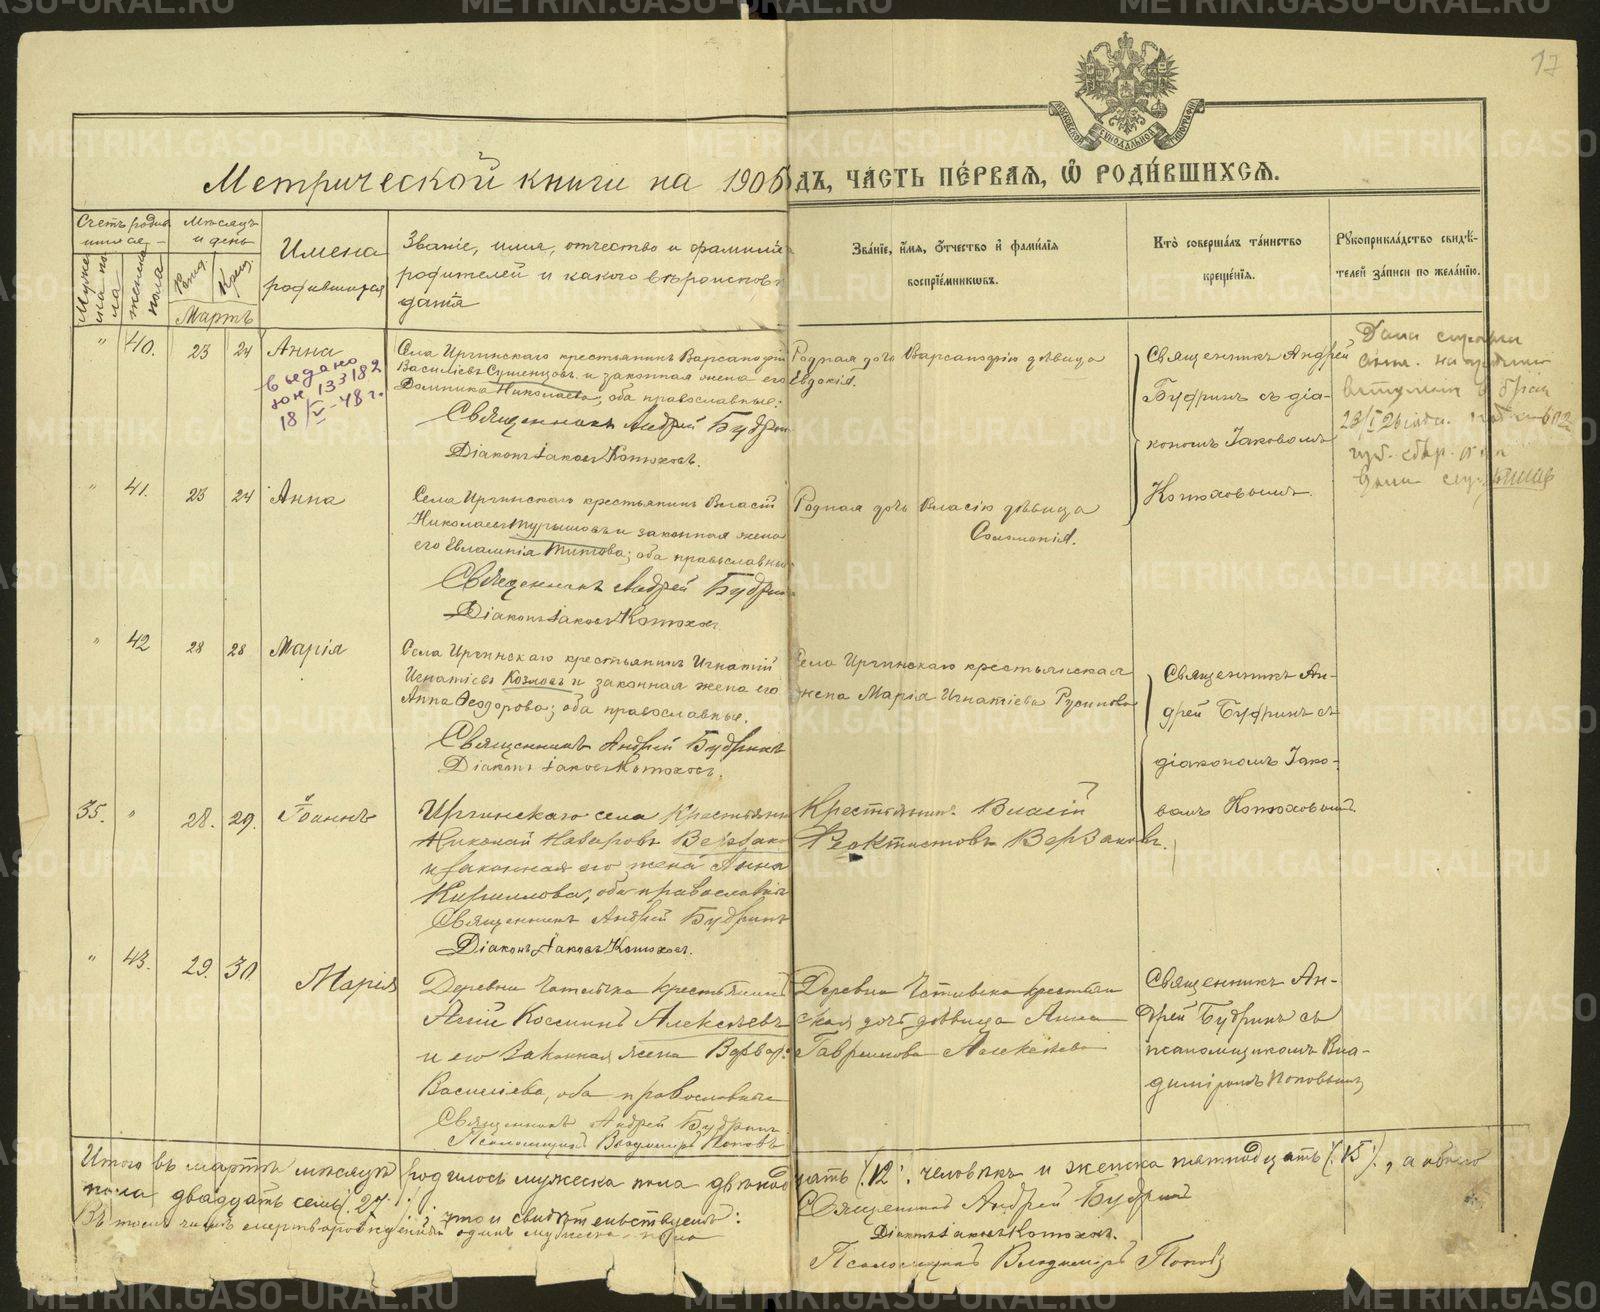 17
МОСКОВСКОЙ СѴНОДАЛЬНОЙ ТИПОГРАФІИ
Метрической книги на 1906 дъ, ча́сть пе́рвая, ѡ҆ роди́вшихся.
Счетъ родив
шихся
Мѣсяцъ
и день
Имена
родившихся
Званіе, имя, отчество и фамилія
родителей и какого вѣроисповѣ
данія
Зва́ніе, и҆́мя, ѻ҆́тчество и҆ фами́лія
воспріе́мниковъ.
Кто̀ соверша́лъ та́инство
креще́нія.
Рꙋкоприкла́дство свидѣ́-
телей за́писи по жела́нію.
Муже
ска по
ла
женска
пола
Рожд.
Крещ.
Мартъ
" 40. 23 24 Анна
выдано
юн 133182
18/V-48 г.
Села Иргинскаго крестьянинъ Варсанофій
Василіевъ Сушенцовъ и законная жена его
Домника Николаева, оба православные.
Священникъ Андрей Будрин
Діаконъ Іаковъ Котюховъ.
Родная дочь Варсанофію дѣвица
Евдокія.
Священникъ Андрей
Будринъ съ діа-
кономъ Іаковомъ
Котюховымъ.
Дана
вступлен в брак
" 41. 23 24 Анна
Села Иргинскаго крестьянинъ Власій
Николаевъ Турышовъ и законная жена
его Евлампія Титова; оба православны
Священникъ Андрей Будрин
Діаконъ Іаковъ Котюхов
Родная дочь Власію дѣвица
Соломонія.
" 42 28 28 Марія
Села Иргинскаго крестьянинъ Игнатій
Игнатіевъ Козловъ и законная жена его
Анна Ѳеодорова; оба православные.
Священникъ Андрей Будринъ
Діаконъ Іаковъ Котюховъ.
Села Иргинскаго крестьянская
жена Марія Игнатіева Русинова
Священникъ Ан-
дрей Будринъ съ
діакономъ Іако-
вомъ Котюховымъ
35. " 28. 29. Іоаннъ
Иргинскаго села Крестьянин
Николай Назаровъ Верзако
и законная его жена Анна
Кириллова, оба православны
Священникъ Андрей Будринъ
Діаконъ Іаковъ Котюховъ.
Крестьянинъ Власій
Ѳеоктистовъ Верзаковъ.
" 43. 29. 30. Марія
Деревни крестьянинъ
Косминъ Алексѣевъ
и его законная жена Варвар:
Василіева, оба православные
Священникъ Андрей Будринъ
Псаломщикъ Владиміръ Поповъ
Деревни крестьян
ская дочь дѣвица Анна
Гаврилова Алексѣева
Священникъ Ан-
дрей Будринъ съ
псаломщикомъ Вла-
диміромъ Поповымъ
Итого въ мартѣ мѣсяцѣ родилось мужеска пола двѣнадцать (12) человѣкъ и женска пятнадцать (15), а обоего
пола двадцать семь. 27.
что и свидѣтельствуемъ:
Въ томъ числѣ мертворожденный одинъ мужеска пола
Священникъ Андрей Будринъ
Діаконъ Іаковъ Котюховъ.
Псаломщикъ Владиміръ Поповъ
METRIKI.GASO-URAL.RU